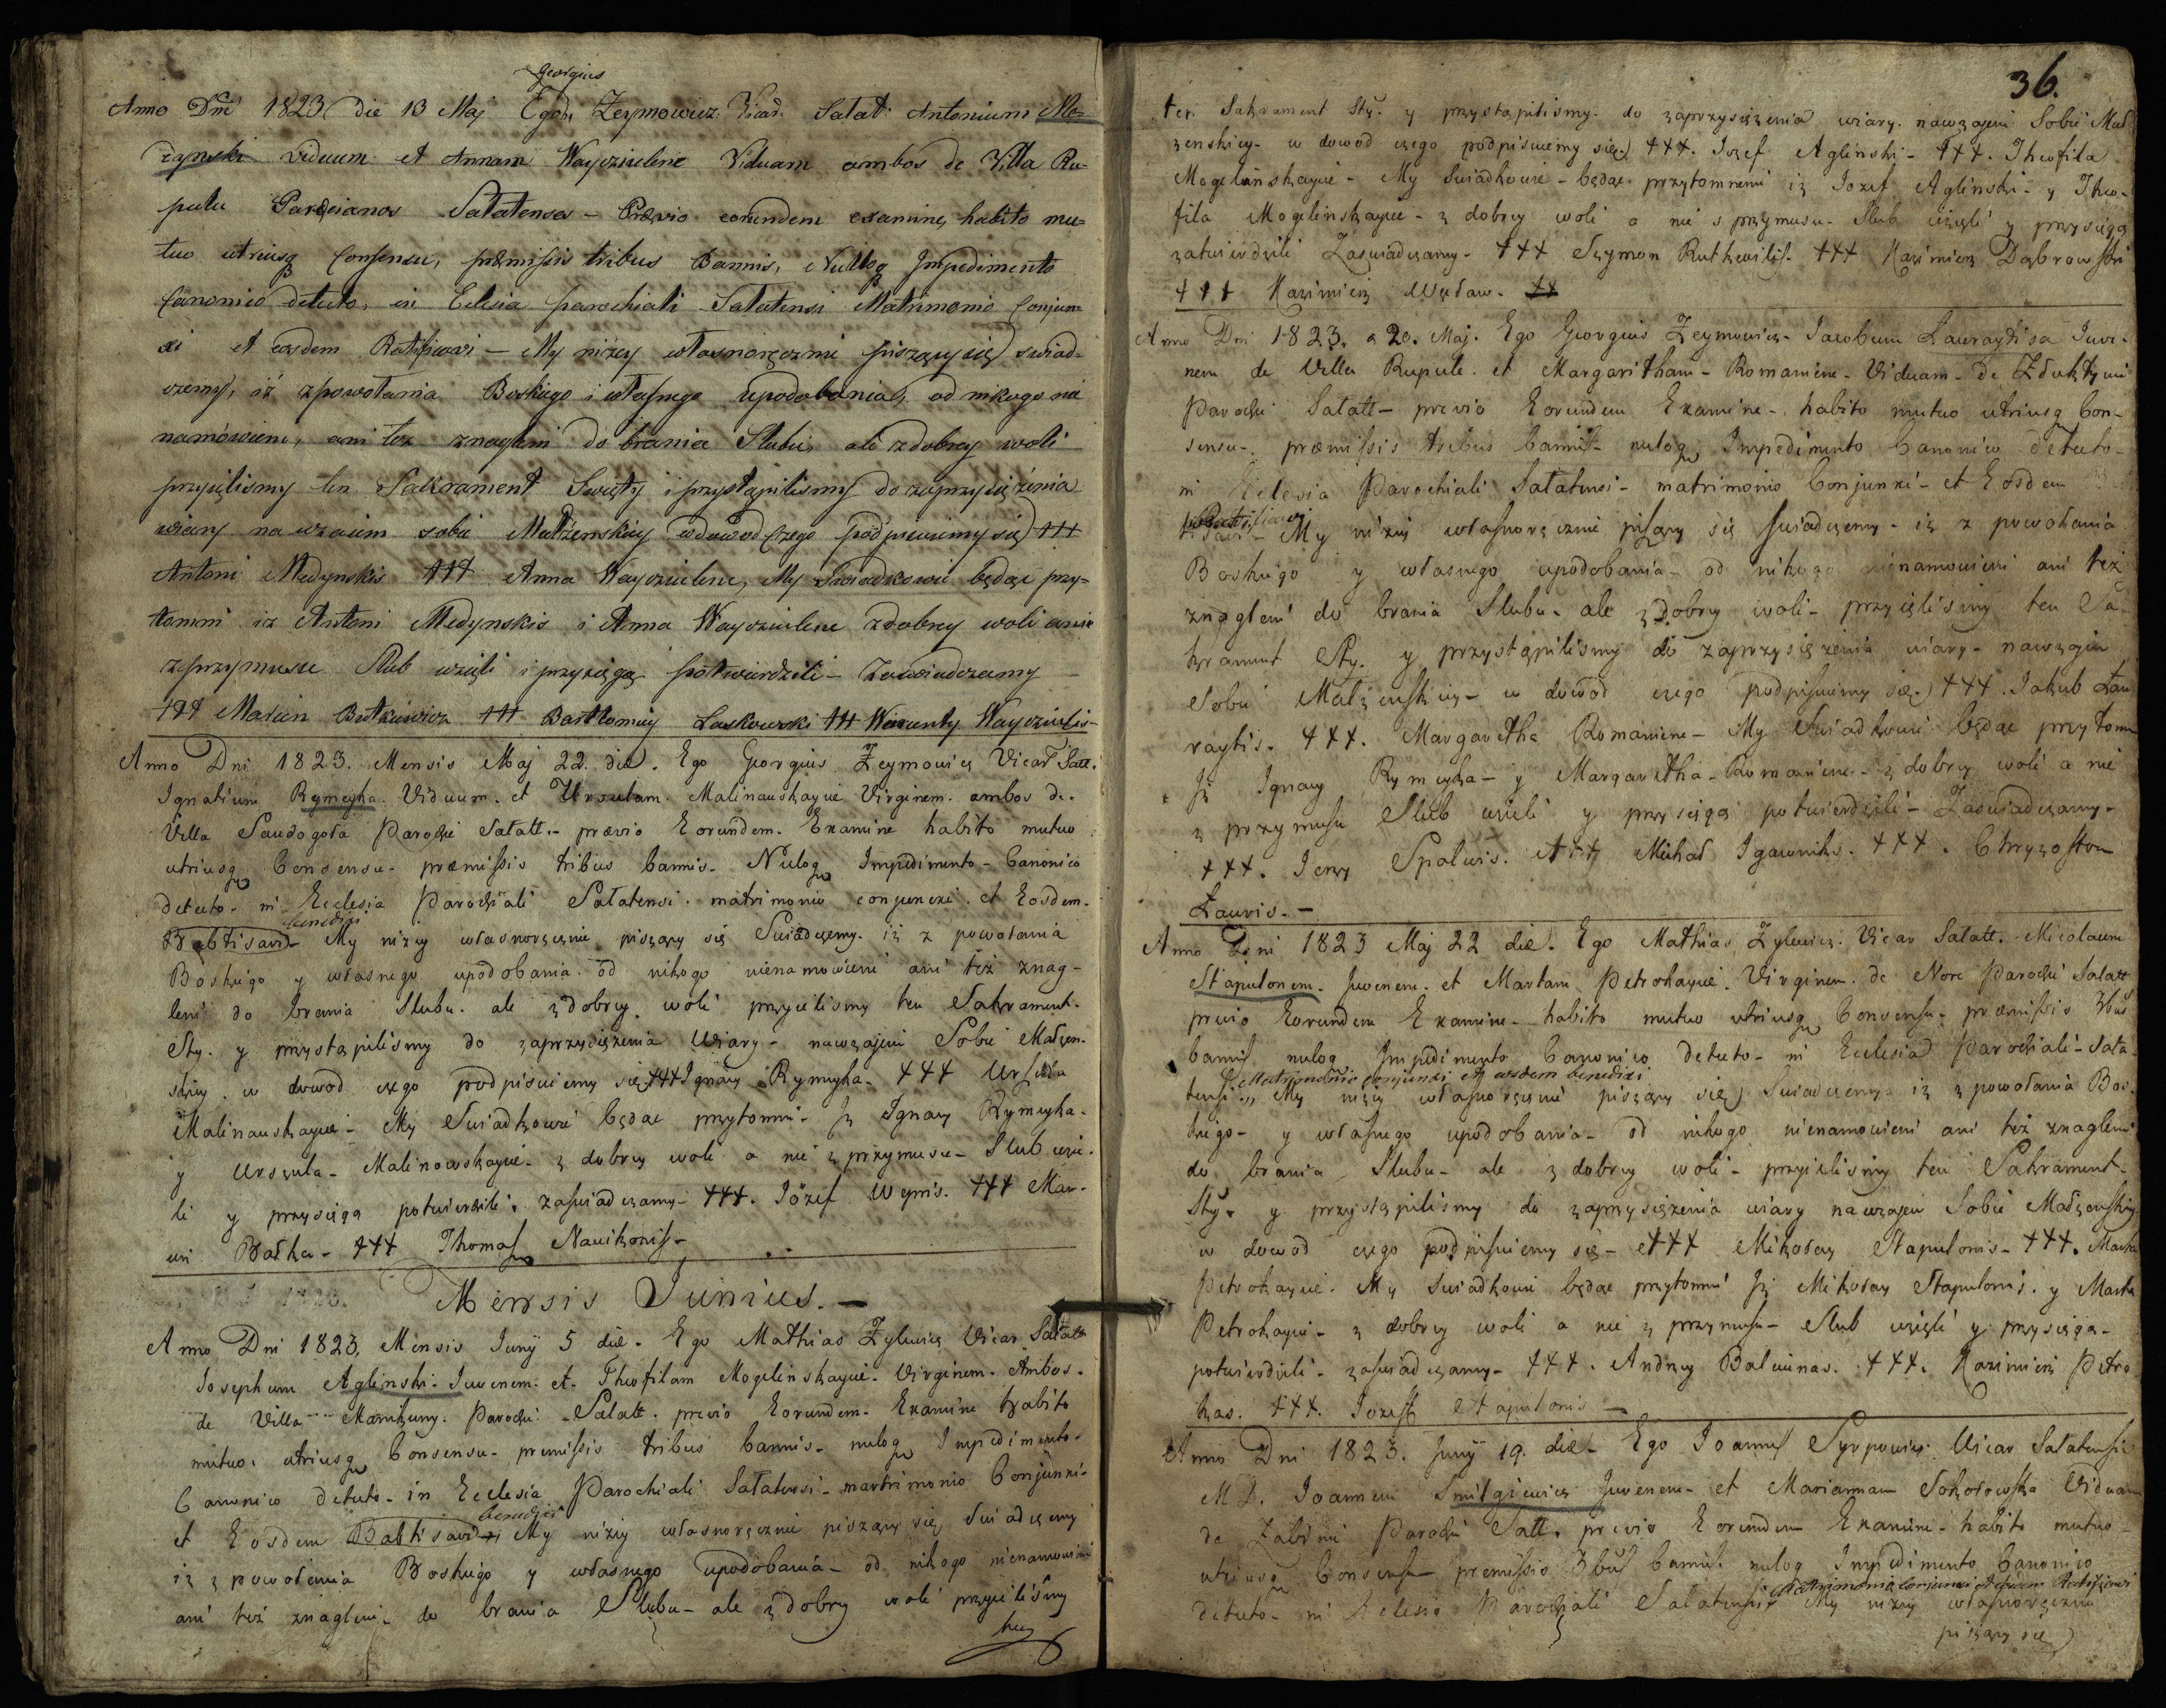 Georgius
Anno Dni 1823 die 13 Maj Ego Zeymowicz Vicar. Salat: Antonium Me-
dynski viduum et Annam Wayciulene Viduam ambos de Villa Ru-
pulu Parocianos Salatensa – Prævio eorundem examine, habito mu-
tuo utriusq Consensu, præmissis tribus Bannis, Nulloq Impedimento
Canonico detecto, in Eclesia parochiali Salatensi Matrimonio Conjun-
xi et eosdem Ratifficavi – My niżey własnoręcznie piszący się swiad-
czemy, iż z powołania Boskiego i własnego upodobania, od nikogo nie
namówieni, ani też znagleni do brania Slubu, ale z dobrey woli
przyięlismy ten Sakrament Swięty i przystąpilismy do zaprzysiężenia
wiary nawzaiem sobie Małżenskiey w dowod Czego podpisuiemy się +++
Antoni Medynskis +++ Anna Wayciulene, My Swiadkowie będąc przy-
tomni iz Antoni Medynskis i Anna Wayciulene z dobrey woli a nie
z przymusu Slub wzięli i przysięgą potwierdzili – Zaswiadczamy
+++ Marcin Butkiewicz +++ Bartłomiey Laskowski +++ Wincenty Wayciulis –
Anno Dni 1823. Mensis Maj 22 die. Ego Georgius Zeymowicz Vicar Salt.
Ignatium Rymeyka. Viduum. et Ursulam. Malinauskayue Virginem. ambos de.
Villa Saudogoła Parochi Salatt. – prævio Eorundem. Examine habito mutuo
utriusq Consensu – præmissis tribus bannis. Nuloq Impedimento – Canonico
detecto. in Ecclesia Parochiali Salatensi. matrimonio conjunxi. et Eosdem.
benedixi
Babtisavi – My niżey własnoręcznie piszący się Swiadczemy. iż z powołania
Boskiego y własnego upodobania. od nikogo nienamowieni ani też znag-
leni do brania Slubu. ale z dobrey woli przyielismy ten Sakrament.
Sty. y przystąpilismy do zaprzysiężenia Wiary – nawzajem Sobie Małzen.
skiey. w dowod czego podpisuiemy się +++ Ignacy Rymeyka. +++ Ursula
Malinauskayue – My Swiadkowie będąc przytomni – Jż Ignacy Rymeyka.
y Urszula – Malinowskayue – z dobrey woli a nie z przymusu – Slub wzie.
li y przysięgą potwierdzili, zaswiadczamy – +++. Józef Wepris. +++ Mar-
cin Bałka – +++ Thomas Navikonis –
Mensis Junius. –
Anno Dni 1823, Mensis Juny 5 die. Ego Mathias Zylewicz Vicar Salatt
Josephum Aglinski. Juvenem. et. Theofilam Mogelinskayue. Virginem. Ambos.
de Villa Manikuny. Parochi. Salatt. previo Eorundem. Examine habito
mutuo. utriusq Consensu – premissis tribus bannis – nuloq Impedimento.
Canonico detecto – in Ecclesia Parochiali Salatensi – martrimonio Conjunxi –
benedixi
et Eosdem Babtisavi – My niżey własnoręcznie piszący się swiadczemy
iż z powołania Boskiego y własnego upodobania – od nikogo nienamowieni
ani też znagleni – do brania Slubu – ale z dobry woli przyielismy
ten
36.
ten Sakrament Sty. y przystąpilismy. do zaprzysiężenia wiary. nawzajem Sobie Mał-
zenskiey – w dowod czego podpisuemy się +++. Jozef Aglinski – +++. Theofila
Mogelinskayue – My Swiadkowie – będąc przytomnemi iż Jozef Aglinski – y Theo-
fila Mogelinskayue – z dobrey woli a nie z przymusu – Slub wzięli y przysięgą
zatwierdzili Zaswiadczamy – +++ Szymon Rutkewilis. +++ Kazimierz Dąbrowski
+++ Kazimierz Węsław. ++
Anno Dni 1823. a 20. Maj. Ego Georgius Zeymowicz – Jacobum Lauraytisa Juve-
nem de Villa Rupule. et Margaritham – Romaniene – Viduam – de Zduktyni
Parochi Salatt – previo Eorundem Examine – habito mutuo utriusq Con-
sensu – præmissis tribus bannis – nuloq Impedimento Canonico detecto –
in Eclesia Parochiali Salatensi – matrimonio Conjunxi – et Eosdem
Ratifficavi
My niżey własnoręcznie pisący się swiadczemy – iż z powołania
Boskiego y własnego upodobania – od nikogo nienamowieni ani też
znagleni do brania Slubu – ale z dobry woli – przyięlismy ten Sa-
krament Sty. y przystąpilismy do zaprzysiężenia wiary – nawzajem
Sobie Małzenskiey – w dowod czego podpisuiemy się +++. Jakub Lau
raytis. +++. Margaretha Romaniene – My Swiadkowie będąc przytomni
Jż Ignacy Rymeyka – y Margaretha – Romaniene – z dobrey woli a nie
z przymusu Slub wzieli y przysięgą potwierdzili – Zaswiadczamy –
+++. Jerzy Spalwis. +++ Michał Igawniks. +++. Chryzostom
Lauris. –
Anno Dni 1823 Maj 22 die. Ego Mathias Zylewicz. Vicar Salatt. Micolaum
Stapulonem. Juvenem. et Martam Petrokayue. Virginem. de Nore Parochi Salatt
previo Eorundem Examine – habito mutuo utriusq Consensu – præmissis 3bus
bannis nuloq Impedimento Canonico detecto – in Ecclesia Parochiali – Sala-
Matrimonio conjunxi et eosdem benedixi
tensi „ My niżey własnoręcznie piszący się Swiadczemy – iż z powołania Bos-
kiego – y własnego upodobania – od nikogo nienamowieni ani też znagleni
do brania Slubu – ale z dobrey woli – przyielismy ten Sakrament –
Sty. y przystąpilismy do zaprzysiężenia wiary nawzajem Sobie Małzenskiey
w dowod czego podpisuiemy się – +++ Mikołay Stapulonis – +++. Marta
Petrokayue. My Swiadkowie będąc przytomni Jż Mikołay Stapulonis. y Marta
Petrokayue – z dobrey woli a nie z przymusu – Slub wzięli y przysięgą –
potwierdzili – zaswiadczamy – +++. Andrzey Balciunas. +++. Kazimierz Petro
kas. +++. Jozef Stapulonis –
Anno Dni 1823. Juny 19. die – Ego Joannes Syrpowicz. Vicar Salatensis
MD. Joannem Smilgiewicz Juvenem – et Mariannam Sokołowska Viduam
de Zabini Parochi Salt. previo Eorundem Examine – habito mutuo –
utriusq Consensu – premissis 3bus bannis. nuloq Impedimento Canonico
Matrimonio Conjunxi et eosdem Ratifficavi
detecto – in Eclesia Parochiali Salatensi – My niżey własnoręcznie
piszący się